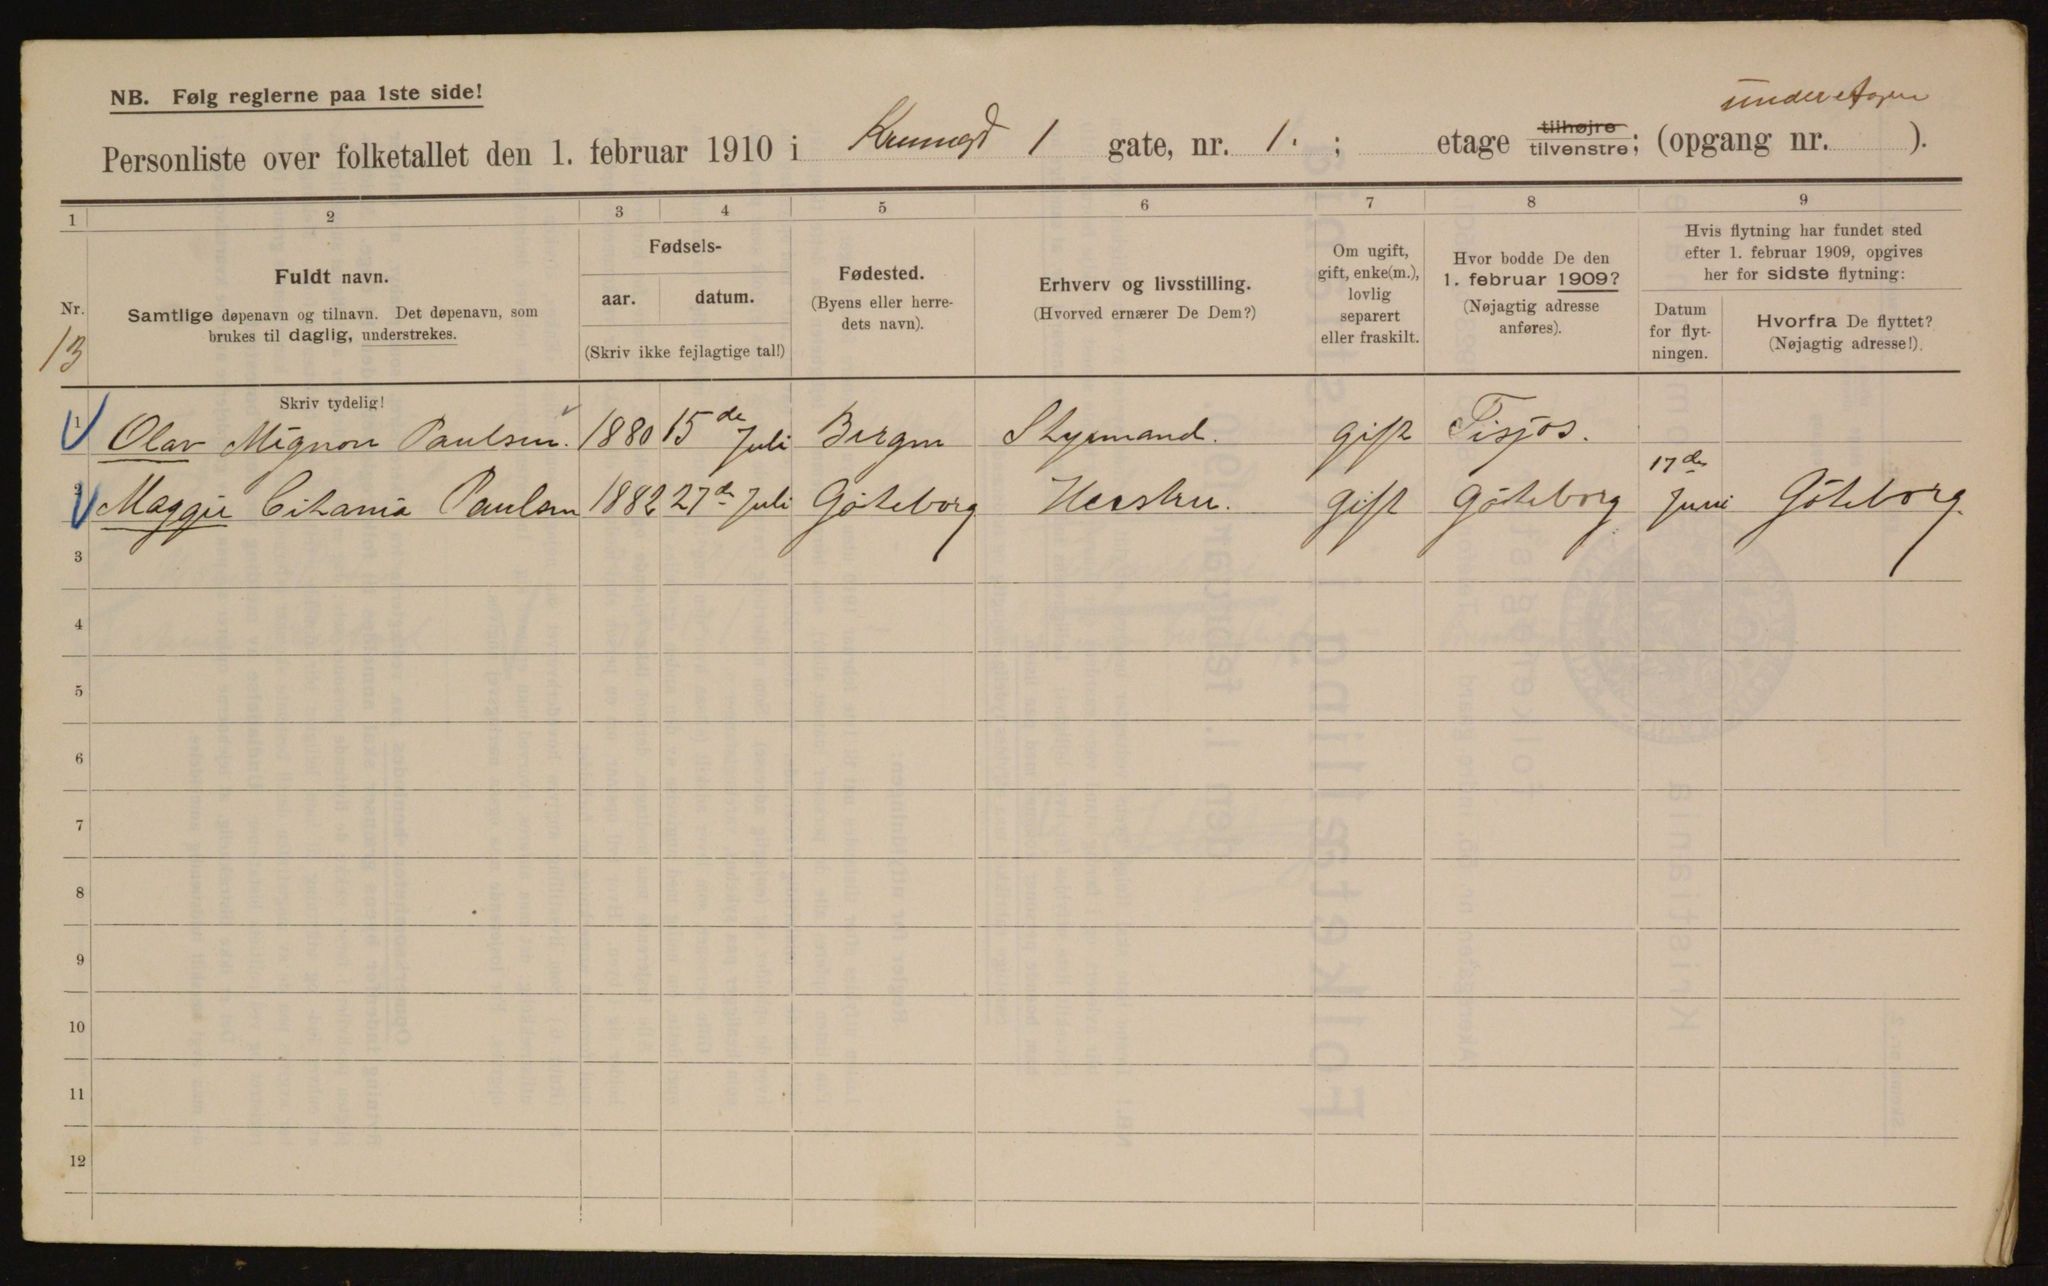 underetagen
NB. Følg reglerne paa 1ste side!
Personliste over folketallet den 1. februar 1910 i Krumgd 1 gate, nr. 1. ; etage tilhøjre tilvenstre; (opgang nr. ).
1 2 3 4 5 6 7 8 9
Nr.
13
Fuldt navn.
Samtlige døpenavn og tilnavn. Det døpenavn, som
brukes til daglig, understrekes.
Skriv tydelig!
Fødsels-
aar. datum.
(Skriv ikke fejlagtige tal!)
Fødested.
(Byens eller herre-
dets navn).
Erhverv og livsstilling.
(Hvorved ernærer De Dem?)
Om ugift,
gift, enke(m.),
lovlig
separert
eller fraskilt.
Hvor bodde De den
1. februar 1909?
(Nøjagtig adresse
anføres).
Hvis flytning har fundet sted
efter 1. februar 1909, opgives
her for sidste flytning:
Datum
for flyt-
ningen.
Hvorfra De flyttet?
(Nøjagtig adresse!).
1 Olav Mignon Paulsen. 1880 15de Juli Bergen Styrmand. gift Tilsjøs.
2 Maggie Titania Paulsen 1882 27de Juli Göteborg Hustru. gift Göteborg 17de Juni Göteborg.
3
4
5
6
7
8
9
10
11
12